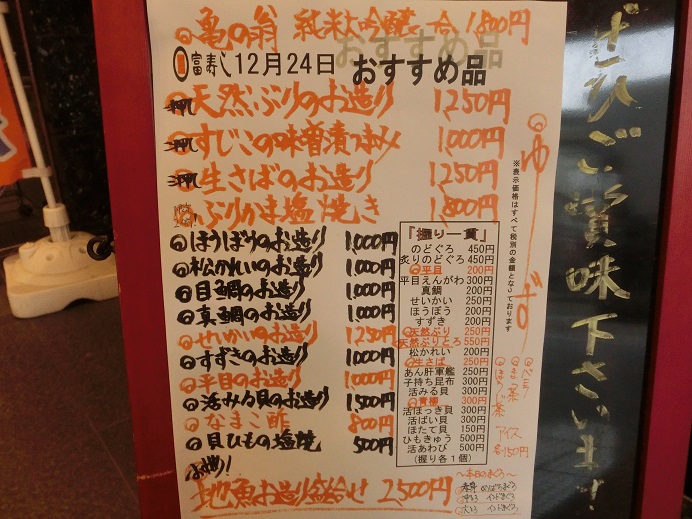 ◎亀の翁 純米大吟醸 一合 1,800円
富寿し 12月24日 おすすめ品
おすすめ品
天然ぶりのお造り 1,250円
すじこの味噌漬つまみ 1,000円
◎生さばのお造り 1,250円
ぶりかま塩焼き 1,800円
◎ほうぼうのお造り 1,000円
◎松かれいのお造り 1,000円
◎目鯛のお造り 1,000円
◎真鯛のお造り 1,000円
◎せいかいのお造り 1,250円
◎すずきのお造り 1,000円
◎平目のお造り 1,000円
◎活みる貝のお造り 1,500円
◎なまこ酢 800円
◎貝ひもの塩焼 500円
地魚お造り盛合せ 2,500円
『握り一貫』
のどぐろ 450円
炙りのどぐろ 450円
◎平目 200円
平目えんがわ 300円
真鯛 200円
せいかい 250円
ほうぼう 200円
すずき 200円
◎天然ぶり 250円
◎天然ぶりとろ 550円
松かれい 200円
◎生さば 250円
あん肝軍艦 250円
子持ち昆布 300円
活みる貝 300円
◎青柳 300円
活ほっき貝 300円
活ばい貝 300円
ほたて貝 150円
ひもきゅう 500円
活あわび 500円
(握り各1個)
※表示価格はすべて税別の金額となっております
◎ゆず
◎バニラ
◎ほうじ茶
アイス
各150円
〜本日のまぐろ〜
ぜひご賞味下さいませ!